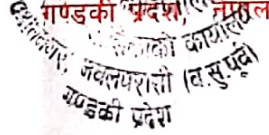 गण्डकी प्रदेश, नेपाल
कार्यालय
नवलपरासी (ब.सु.पूर्व)
गण्डकी प्रदेश